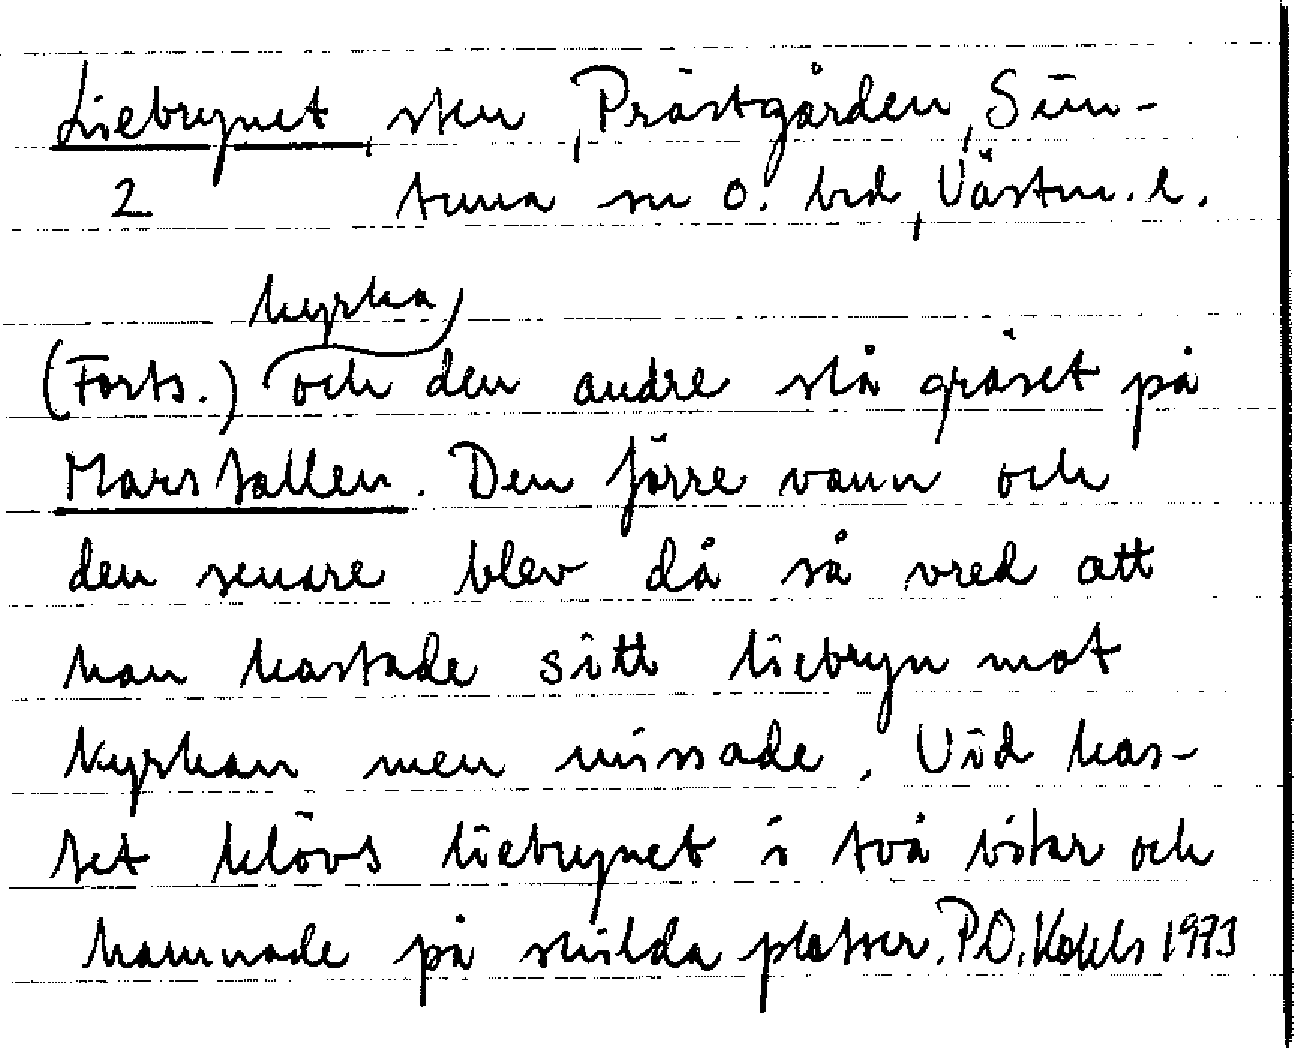 Liebrynet, sten, Prästgården, Sim-
2 tuna sn o. hrd, Västm. l.
kyrka
(Forts.) och den andre slå gräset på
Marstallen. Den förre vann och
den senare blev då så vred att
han kastade sitt liebryn mot
kyrkan men missade. Vid kas-
tet klövs liebrynet i två bitar och
hamnade på skilda platser. P.O. Kåks 1973